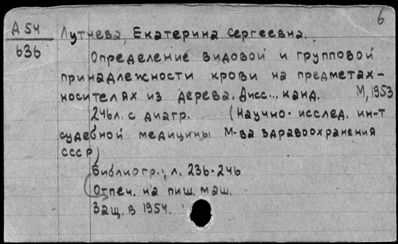 6
А 54
636
Лутчева, Екатерина Сергеевна.
Определение видовой и групповой
принадлежности крови на предметах-
носителях из дерева. Дисс... канд. М, 1953
246л. с диагр. (Научно-исслед. ин-т
судебной медицины М-ва здравоохранения
СССР)
Библиогр.; л. 236-246
Отпеч. на пиш. маш.
Защ. в 1954.